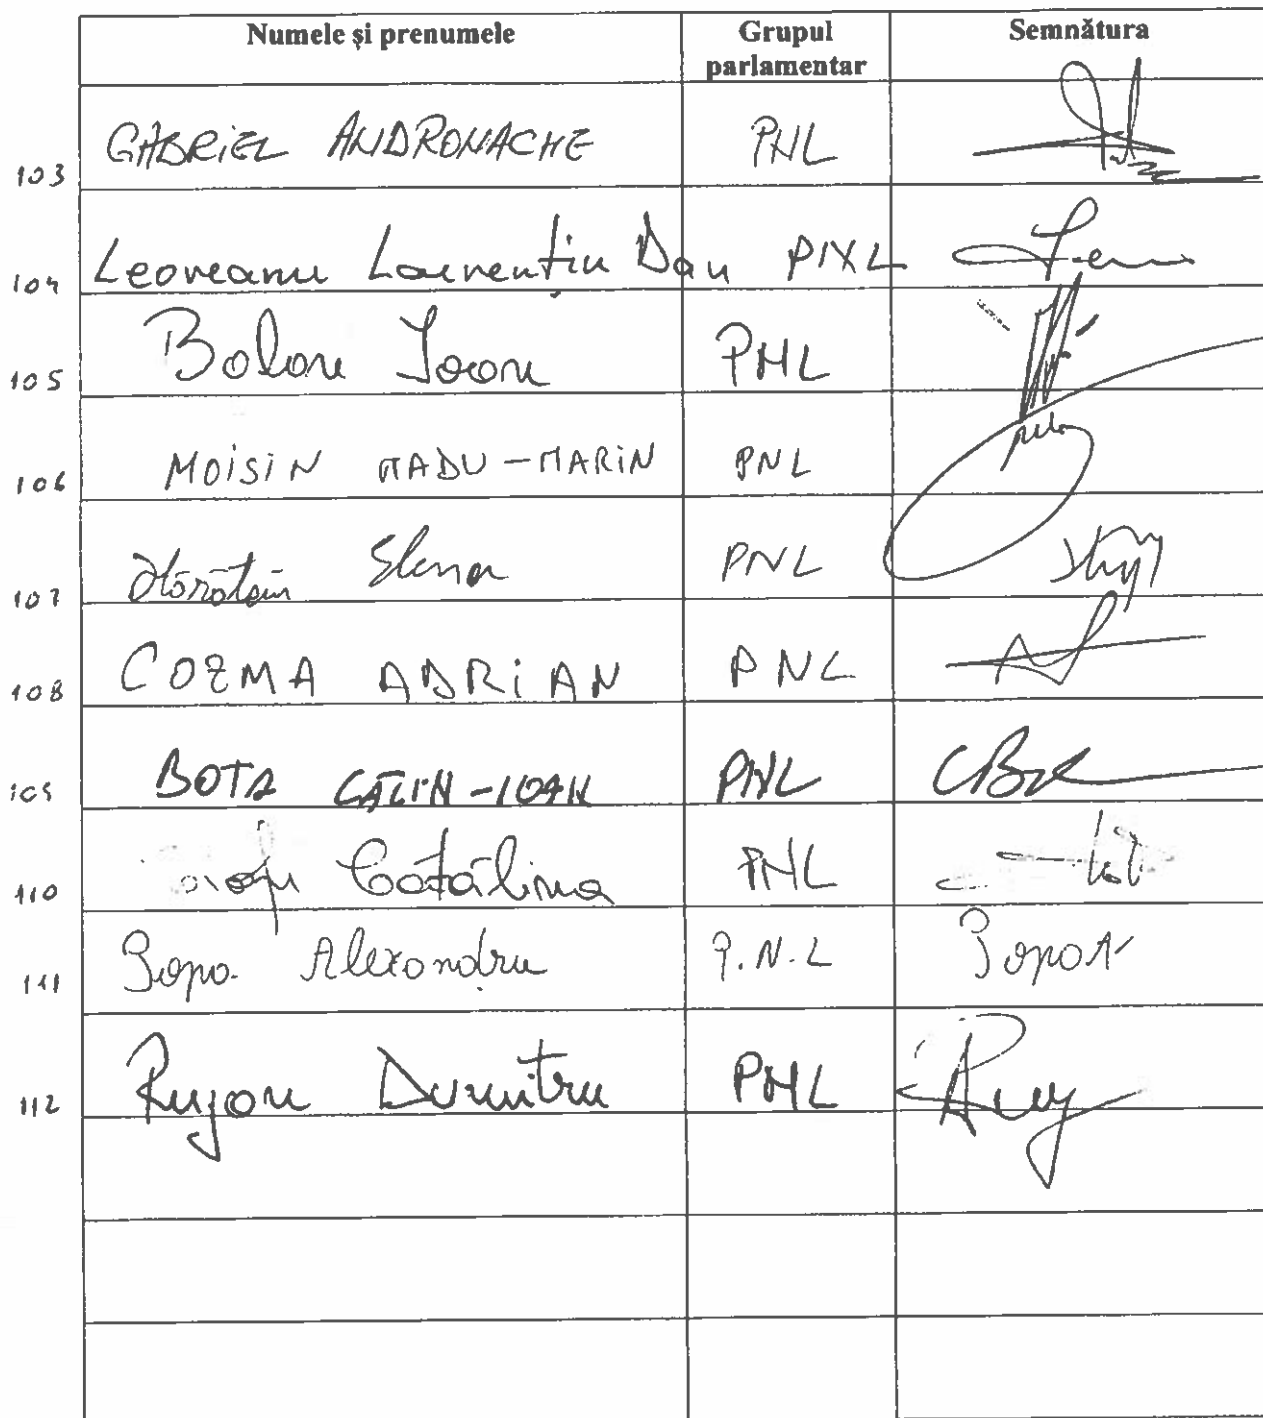 Numele și prenumele Grupul parlamentar Semnătura
103 GABRIEL ANDRONACHE PNL
104 Leoreanu Laurențiu Dan PNL
105 Balan Ioan PNL
106 MOISIN RADU-MARIN PNL
107 Hărătău Elena PNL
108 COZMA ADRIAN PNL
109 BOTA CĂLIN-IOAN PNL
110 Cătălina PNL
111 Popa Alexandru P.N.L Popa A
112 Rujan Dumitru PNL